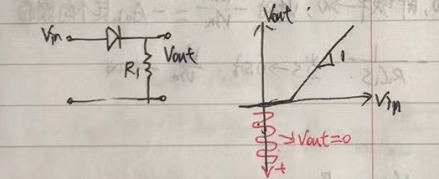 Vin
Vout
R1
Vout
1
Vin
Vout=0
t